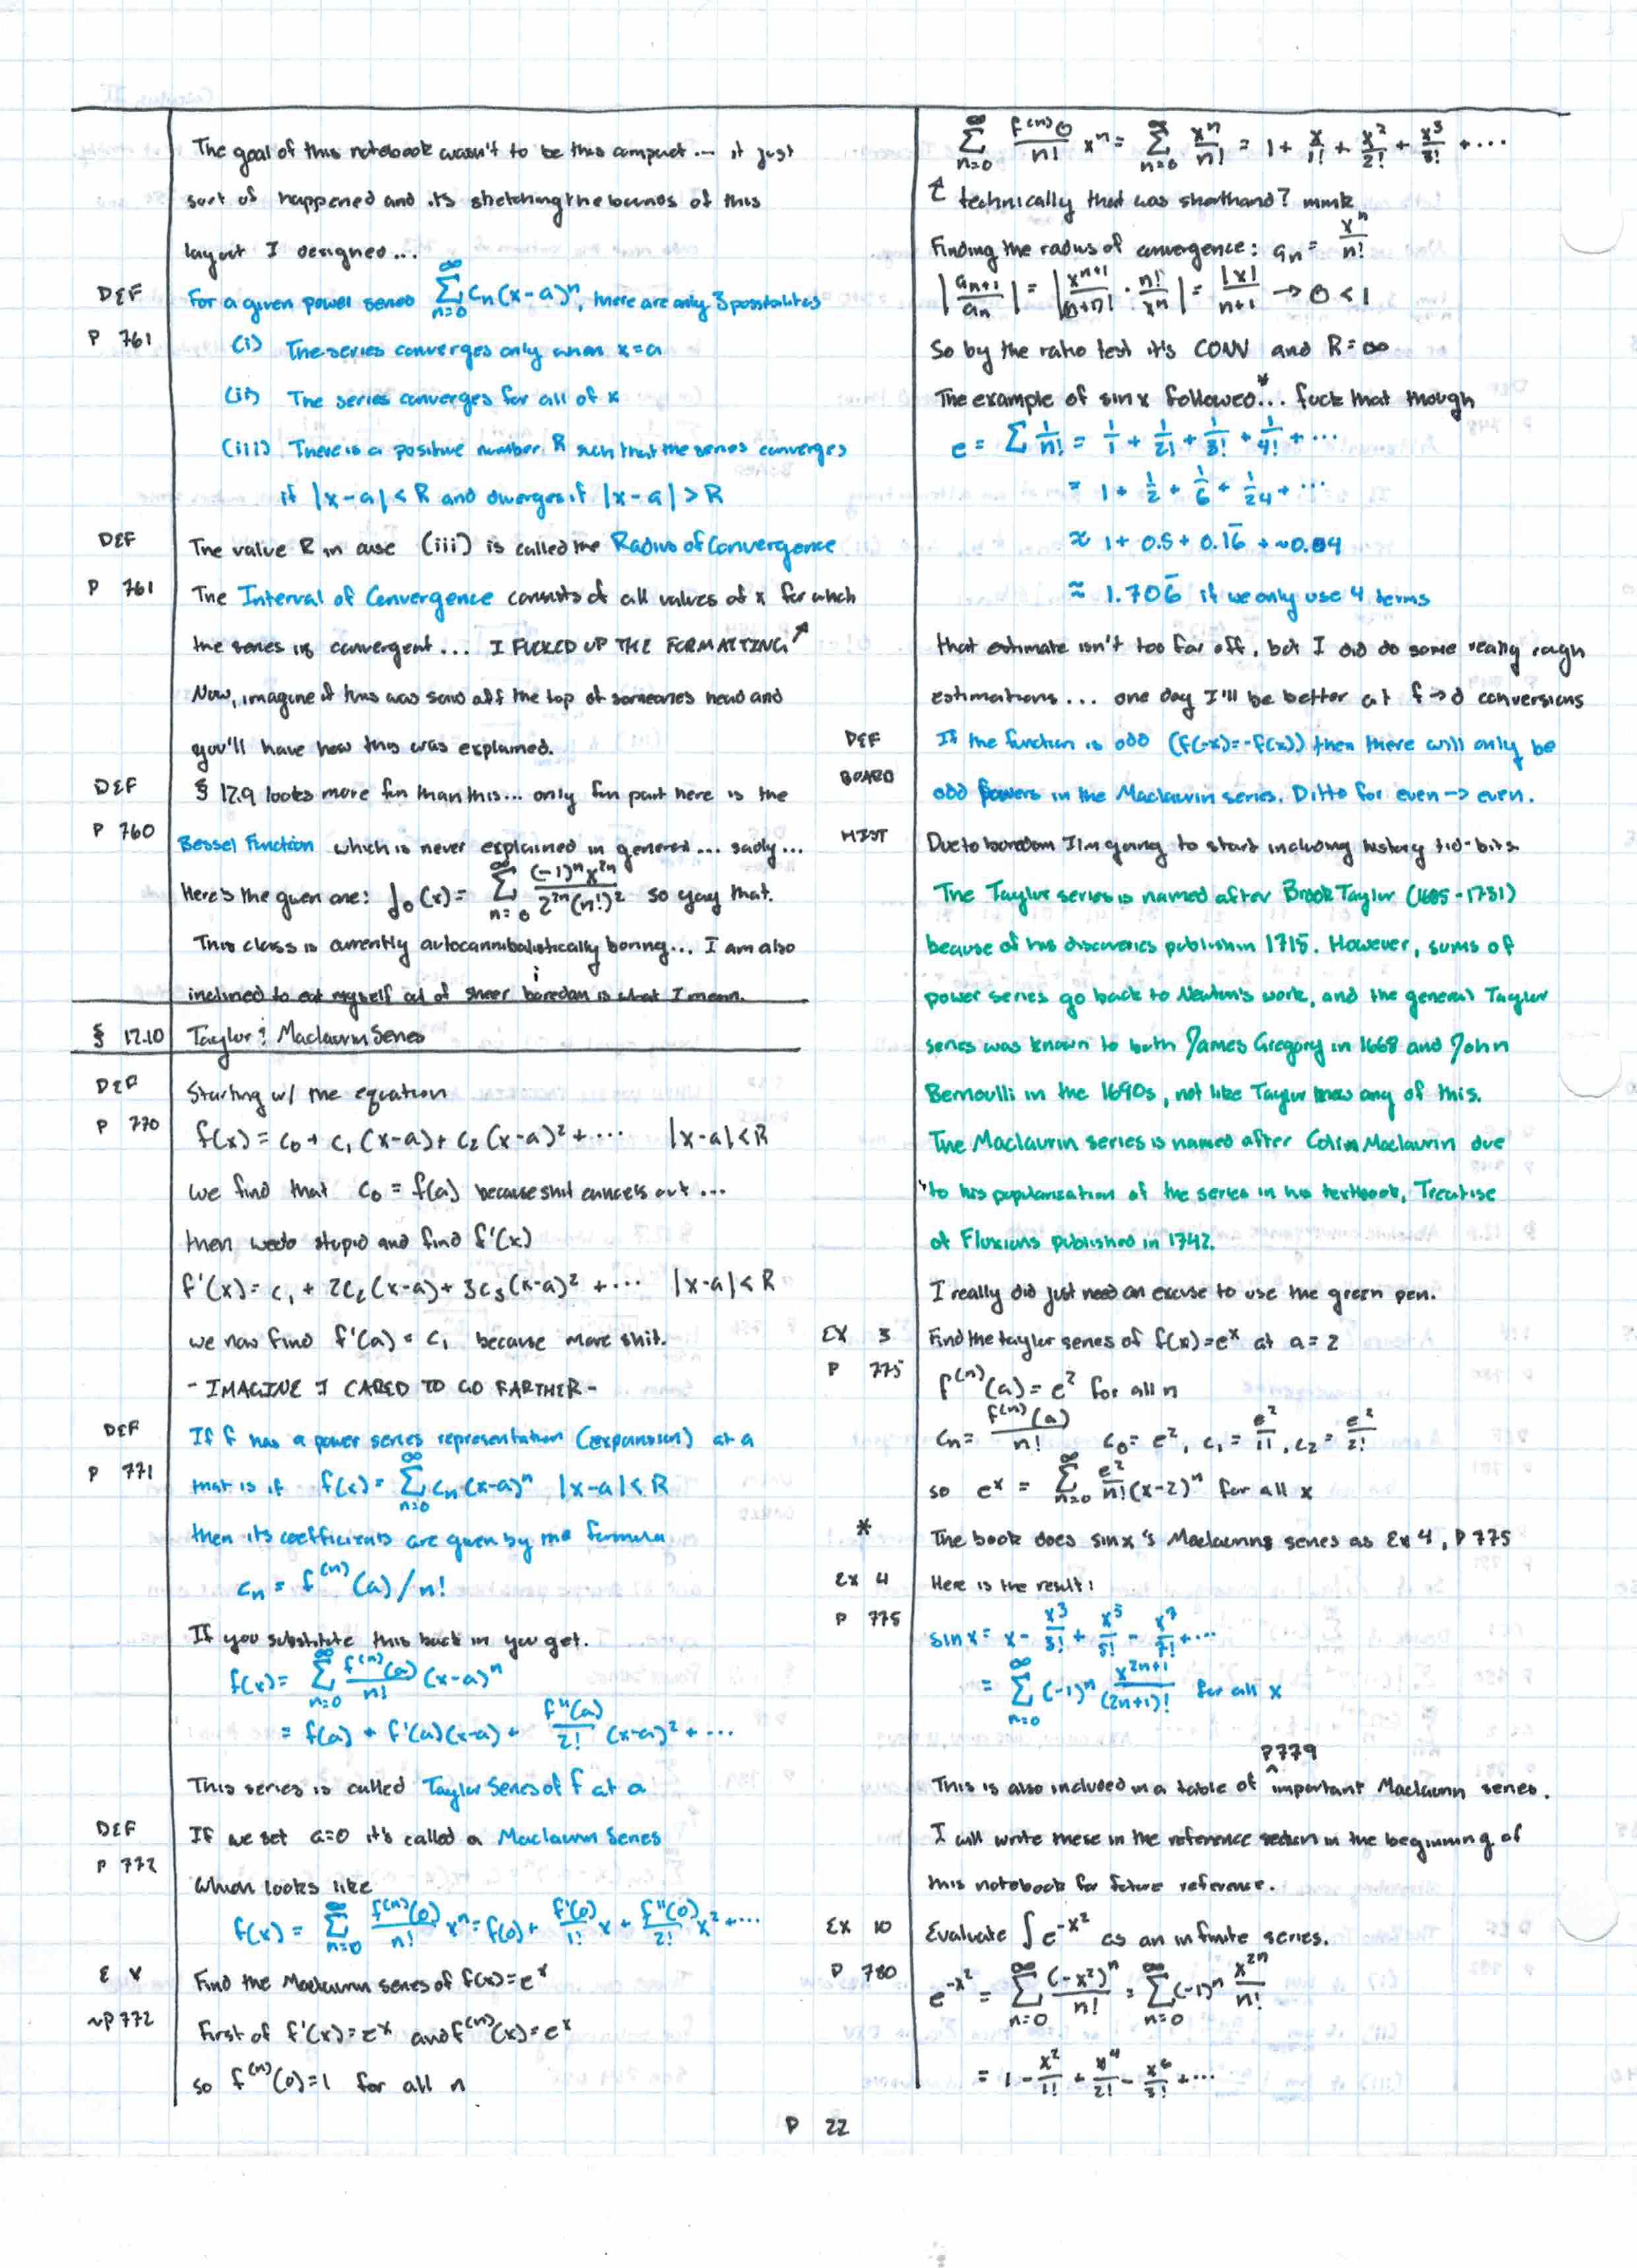 The goal of this notebook wasn't to be this compact... it just
sort of happened and its stretching the bounds of this
layout I designed...
DEF For a given power series ∑_{n=0}^{∞} c_n(x-a)^n, there are only 3 possibilites
P 761 (i) The series converges only when x=a
(ii) The series converges for all of x
(iii) There is a positive number R such that the series converges
if |x-a|<R and diverges if |x-a|>R
DEF The value R in case (iii) is called the Radius of Convergence
P 761 The Interval of Convergence consists of all values of x for which
the series is convergent... I FUCKED UP THE FORMATTING ↗
Now, imagine if this was said off the top of someone's head and
you'll have how this was explained.
DEF § 12.9 looks more fun than this... only fun part here is the
P 760 Bessel Function which is never explained in general... sadly...
Here's the given one: J_0(x) = ∑_{n=0}^{∞} (-1)^n x^{2n} / 2^{2n}(n!)^2 so yay that.
This class is currently autocannibalistically boring... I am also
inclined to eat myself out of sheer boredom is what I mean.
§ 12.10 Taylor & Maclaurin Series
DEF Starting w/ the equation
P 770 f(x) = c_0 + c_1(x-a) + c_2(x-a)^2 + ... |x-a|<R
we find that c_0 = f(a) because shit cancels out...
then we do stupid and find f'(x)
f'(x) = c_1 + 2c_2(x-a) + 3c_3(x-a)^2 + ... |x-a|<R
we now find f'(a) = c_1 because more shit.
- IMAGINE I CARED TO GO FARTHER -
DEF If f has a power series representation (expansion) at a
P 771 that is if f(x) = ∑_{n=0}^{∞} c_n(x-a)^n |x-a|<R
then its coefficients are given by the formula
c_n = f^{(n)}(a)/n!
If you substitute this back in you get.
f(x) = ∑_{n=0}^{∞} f^{(n)}(a)/n! (x-a)^n
= f(a) + f'(a)(x-a) + f''(a)/2! (x-a)^2 + ...
This series is called Taylor Series of f at a
DEF If we set a=0 it's called a Maclaurin Series
P 772 which looks like
f(x) = ∑_{n=0}^{∞} f^{(n)}(0)/n! x^n = f(0) + f'(0)/1! x + f''(0)/2! x^2 + ...
EX Find the Maclaurin series of f(x)=e^x
~P772 First of f'(x)=e^x and f^{(n)}(x)=e^x
so f^{(n)}(0)=1 for all n
∑_{n=0}^{∞} f^{(n)}0/n! x^n = ∑_{n=0}^{∞} x^n/n! = 1 + x/1! + x^2/2! + x^3/3! + ...
↑ technically that was shorthand? mmk
Finding the radius of convergence: a_n = x^n/n!
|a_{n+1}/a_n| = |x^{n+1}/(n+1)! · n!/x^n| = |x|/n+1 → 0 < 1
So by the ratio test it's CONV and R=∞
The example of sin x followed*... fuck that though
e = ∑ 1/n! = 1/1 + 1/2! + 1/3! + 1/4! + ...
= 1 + 1/2 + 1/6 + 1/24 + ...
≈ 1 + 0.5 + 0.16̄ + ~0.04
≈ 1.706̄ if we only use 4 terms
that estimate isn't too far off, but I did do some really rough
estimations... one day I'll be better at f→d conversions
DEF If the function is odd (f(-x)=-f(x)) then there will only be
BOARD odd powers in the Maclaurin series. Ditto for even → even.
HIST Due to boredom I'm going to start including history tid-bits
The Taylor series is named after Brook Taylor (1685-1731)
because of his discoveries publish in 1715. However, sums of
power series go back to Newton's work, and the general Taylor
series was known to both James Gregory in 1668 and John
Bernoulli in the 1690s, not like Taylor knew any of this.
The Maclaurin series is named after Colin Maclaurin due
to his popularization of the series in his textbook, Treatise
of Fluxions published in 1742.
I really did just need an excuse to use the green pen.
EX 3 Find the taylor series of f(x)=e^x at a=2
P 775 f^{(n)}(a) = e^2 for all n
c_n = f^{(n)}(a)/n! c_0 = e^2, c_1 = e^2/1!, c_2 = e^2/2!
so e^x = ∑_{n=0}^{∞} e^2/n! (x-2)^n for all x
* The book does sin x's Maclaurins series as Ex 4, P 775
EX 4 Here is the result:
P 775 sin x = x - x^3/3! + x^5/5! - x^7/7! + ...
= ∑_{n=0}^{∞} (-1)^n x^{2n+1}/(2n+1)! for all x
P779
This is also included in a table of ^ important Maclaurin series.
I will write these in the reference section in the beginning of
this notebook for future reference.
EX 10 Evaluate ∫e^{-x^2} as an infinite series.
P 780 e^{-x^2} = ∑_{n=0}^{∞} (-x^2)^n/n! = ∑_{n=0}^{∞} (-1)^n x^{2n}/n!
= 1 - x^2/1! + x^4/2! - x^6/3! + ...
P 22